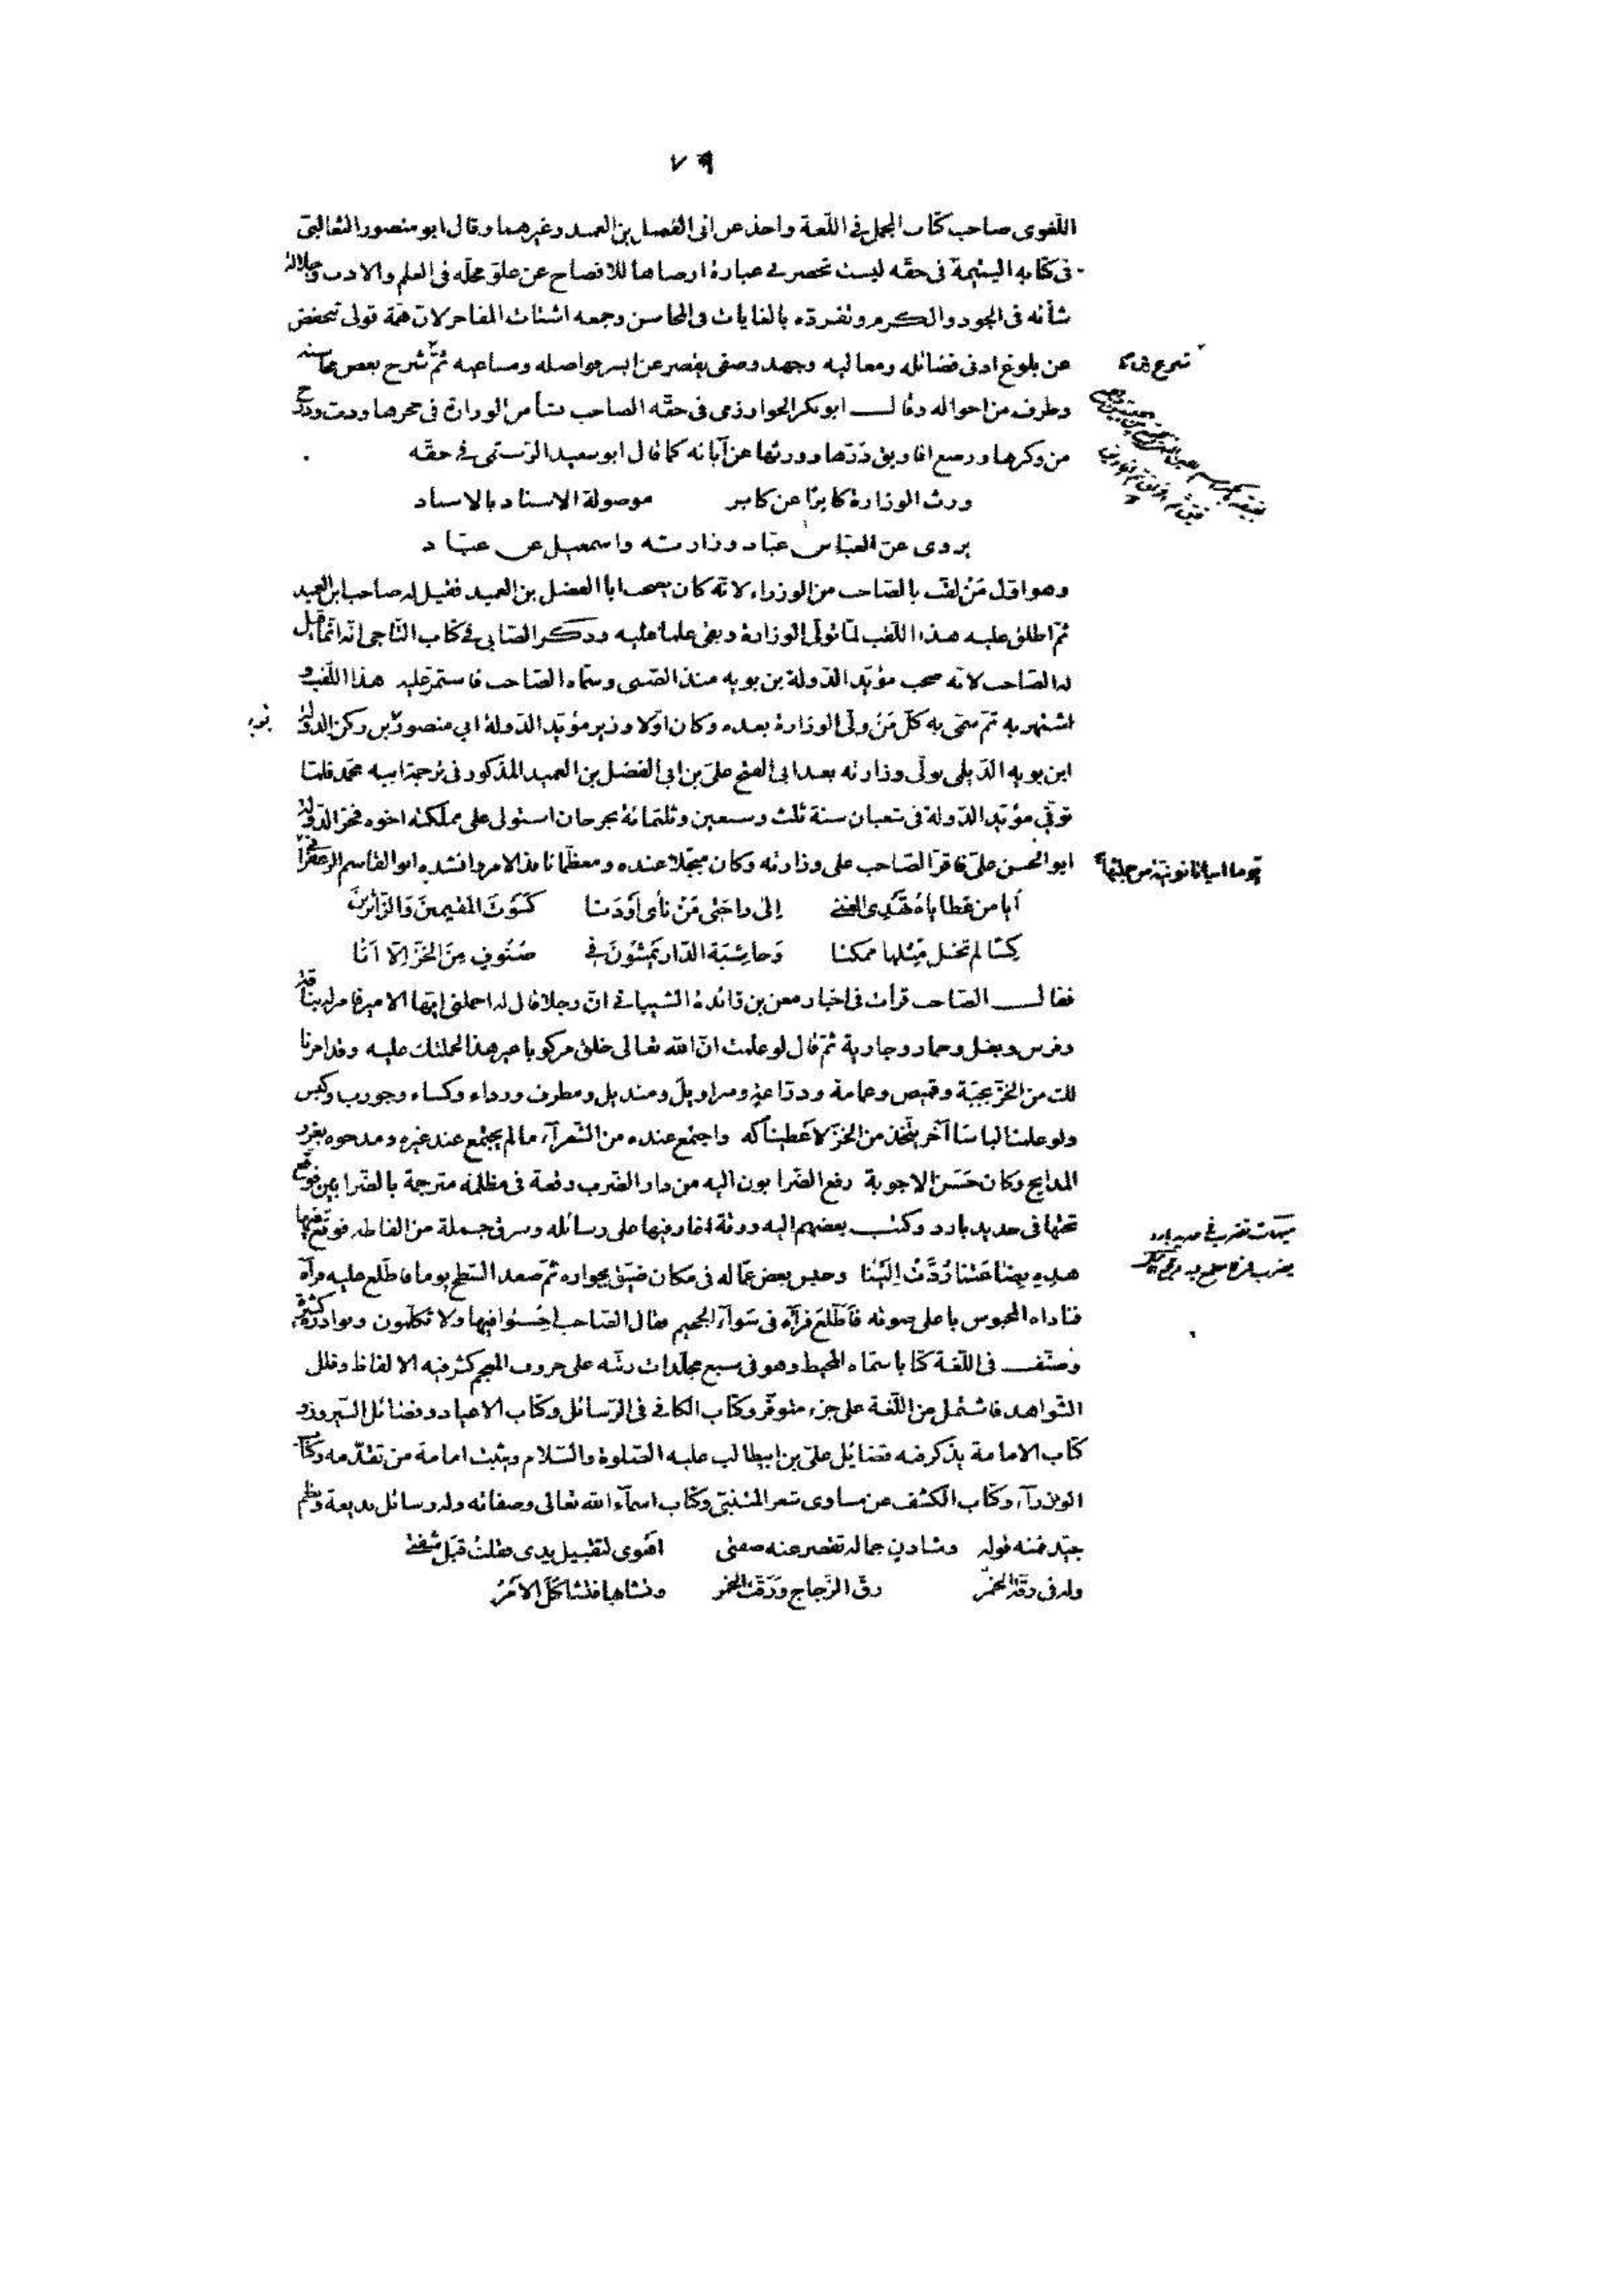 ٧٩
اللغوى صاحب كتاب المجمل فى اللغة واخذ عن ابى الفضل بن العميد وغيرهما وقال ابو منصور الثعالبى
فى كتابه اليتيمة فى حقه ليست تحضرنى عبارة ارضاها للافصاح عن علو محله فى العلم والادب وجلالة
شأنه فى الجود والكرم وتفرده بالغايات فى المحاسن وجمعه اشتات المفاخر لان همة قولى تنخفض
عن بلوغ ادنى فضائله ومعاليه وجهد وصفى يقصر عن ايسر فواضله ومساعيه ثم شرح بعض محاسنه
وطرف من احواله وقال ابو بكر الخوارزمى فى حقه الصاحب نشأ من الوزارة فى حجرها ودب ودرج
من وكرها ورضع افاويق درّها وورثها عن آبائه كما قال ابو سعيد الرستمى فى حقه
ورث الوزارة كابرًا عن كابر موصولة الاسناد بالاسناد
يروى عن العبّاس عبّاد وزارته واسمعيل عن عبّاد
وهو اوّل مَنْ لقّب بالصّاحب من الوزراء لانّه كان يصحب ابا الفضل بن العميد فقيل له صاحب ابن العميد
ثمّ اطلق عليه هذا اللقب لمّا تولّى الوزارة وبقى علما عليه وذكر الصّابى فى كتاب التّاجى انّه انّما قيل
له الصّاحب لانّه صحب مؤيّد الدّولة بن بويه منذ الصّبى وسمّاه الصّاحب فاستمرّ عليه هذا اللّقب و
اشتهر به ثمّ سمّى به كلّ مَنْ ولّى الوزارة بعده وكان اوّلا وزير مؤيّد الدّولة ابى منصور بن ركن الدّولة
ابن بويه الدّيلمى تولّى وزارته بعد ابى الفتح علىّ بن ابى الفضل بن العميد المذكور فى ترجمة ابيه محمّد فلمّا
توفّى مؤيّد الدّولة فى شعبان سنة ثلث وسبعين وثلثمائة بجرجان استولى على مملكته اخوه فخر الدّولة
ابو الحسن علىّ فاقرّ الصّاحب على وزارته وكان مبجّلا عنده ومعظّما نافذ الامر وانشده ابو القاسم الزعفرانى
أيا من عطاياه تهدى الغنى إلى راحتى مَنْ نأى أوْ دَنا كَسَوْتَ المقيمينَ وَالزّائرينَ
كِسًا لم تخل مثلها ممكنا وَحاشيَة الدّار يَمْشُونَ فى صُنُوفٍ مِنَ الخَزِّ اِلّا اَنَا
فقال الصّاحب قرأت فى اخبار معن بن زائدة الشيبانى انّ رجلا قال له احملنى ايّها الامير فامر له بناقة
وفرس وبغل وحمار وجارية ثمّ قال لو علمت انّ الله تعالى خلق مركوبا غير هذا لحملتك عليه وقد امرنا
لك من الخزّ بجبّة وقميص وعمامة ودرّاعة وسراويل ومنديل ومطرف ورداء وكساء وجورب وكيس
ولو علمنا لباسًا آخر يتّخذ من الخزّ لاعطيناكه واجتمع عنده من الشّعرآء ما لم يجتمع عند غيره ومدحوه بغرر
المدايح وكان حَسَن الاجوبة رفع الضّرابون اليه من دار الضّرب رقعة فى مظلمة مترجمة بالضّرابين فوقع
تحتها فى حديد بارد وكتب بعضهم اليه ورقة اغار فيها على رسائله وسرق جملة من الفاظه فوقّع فيها
هذِهِ بِضَاعَتُنَا رُدَّتْ اِلَيْنَا وحبس بعض عمّاله فى مكان ضيّق بجواره ثمّ صعد السّطح يوما فاطّلع عليه فرآه
فناداه المحبوس باعلى صوته فَاَطَّلَعَ فَرَآهُ فى سَوآءِ الجحيم فقال الصّاحب اخْسَئُوا فيها ولا تكلّمون ونوادره كثيرة
وصنّف فى اللّغة كتابا سمّاه المحيط وهو فى سبع مجلّدات رتّبه على حروف المعجم كثر فيه الالفاظ وقلل
الشّواهد فاشتمل من اللّغة على جزء متوفّر وكتاب الكافى فى الرّسائل وكتاب الاعياد وفضائل النّيروز و
كتاب الامامة يذكر فيه فضايل علىّ بن ابيطالب عليه الصّلوة والسّلام ويثبت امامة من تقدّمه وكتاب
الوزرآء وكتاب الكشف عن مساوى شعر المتنبّى وكتاب اسمآء الله تعالى وصفاته وله رسائل بديعة ونظم
جيّد فمنه قوله وشادنٍ جماله تقصر عنه صفتى اهْوى لتقبيل يدى فقلتُ قبّل شفتى
وله فى رقّة الخمر رقّ الزّجاج وَرَقّتْ الخمر وتشابها فتشاكَلَ الاَمْرُ